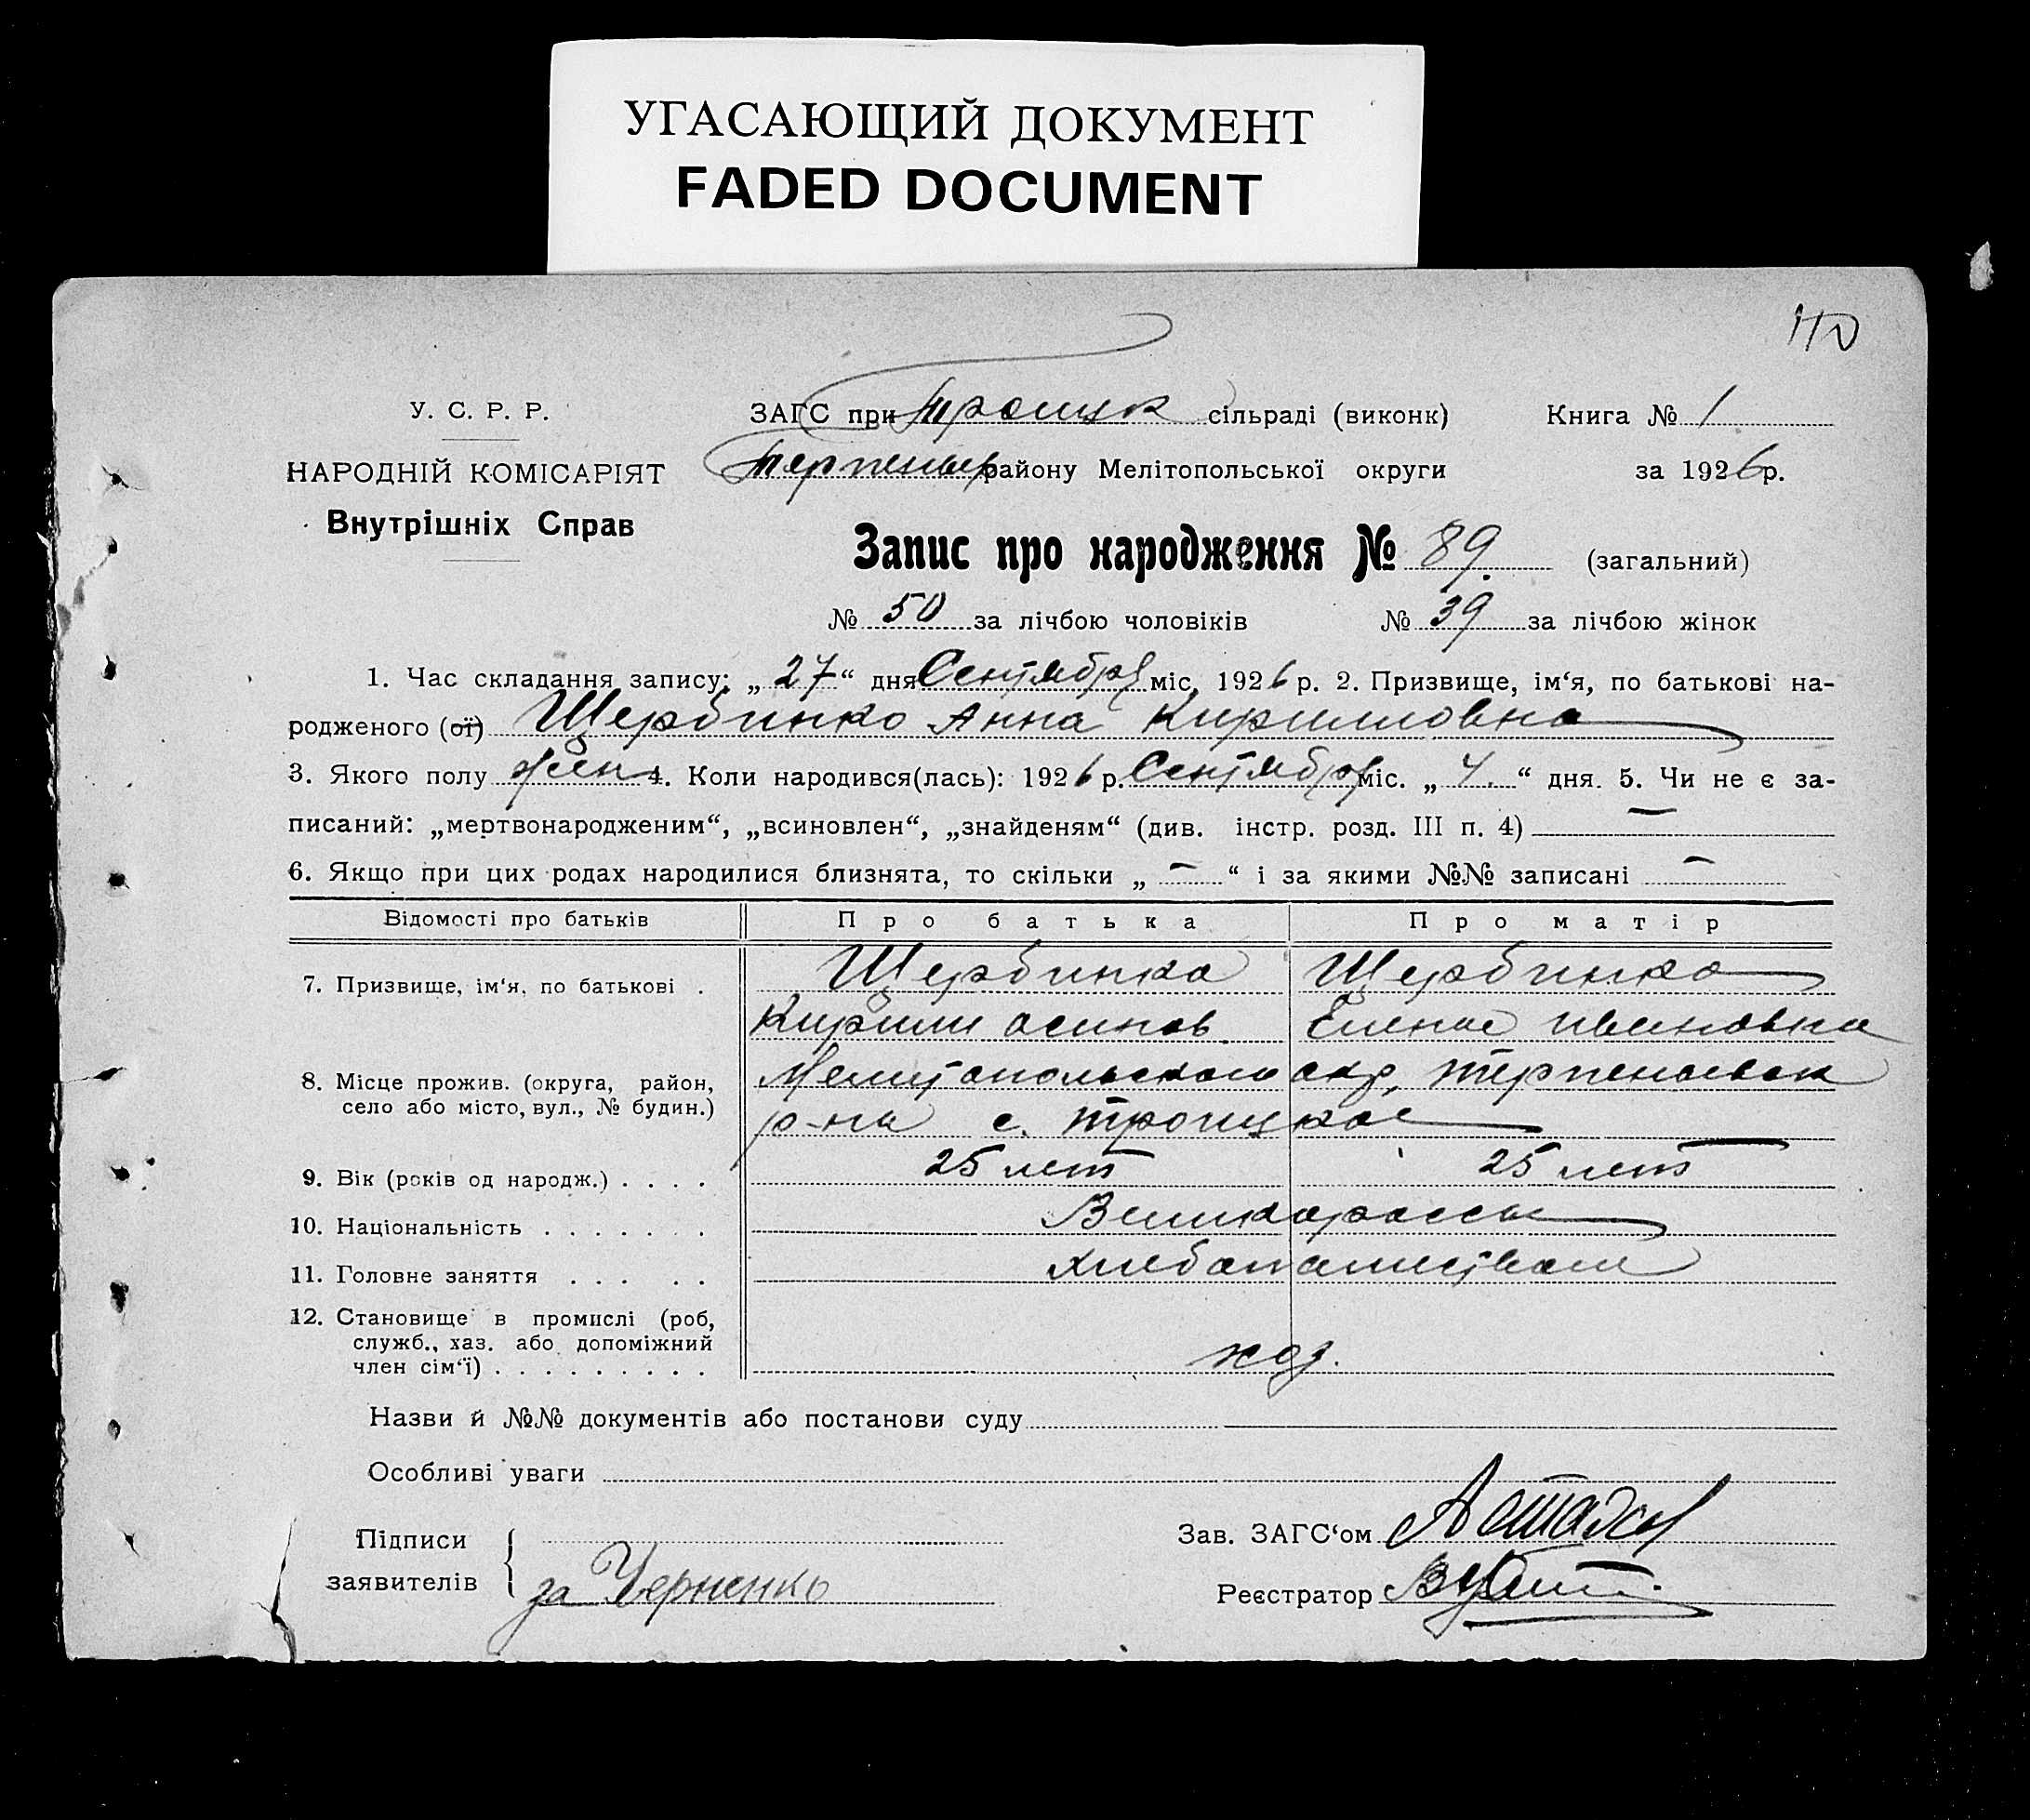 УГАСАЮЩИЙ ДОКУМЕНТ
FADED DOCUMENT
У. С. Р. Р.
НАРОДНІЙ КОМІСАРІЯТ
Внутрішніх Справ
ЗАГС при Троицк сільраді (виконк) Книга № 1
Терпеньев району Мелітопольської округи за 1926 р.
Запис про народження № 89. (загальний)
№ 50 за лічбою чоловіків № 39 за лічбою жінок
1. Час складання запису: „27“ дня Сентября міс. 1926 р. 2. Призвище, ім‘я, по батькові на-
родженого (ої) Щербинко Анна Кирилловна
3. Якого полу жен 4. Коли народився(лась): 1926 р. Сентября міс. „4.“ дня. 5. Чи не є за-
писаний: „мертвонародженим“, „всиновлен“, „знайденям“ (див. інстр. розд. III п. 4) —
6. Якщо при цих родах народилися близнята, то скільки „—“ і за якими №№ записані —
Відомості про батьків Про батька Про матір
7. Призвище, ім‘я, по батькові . Щербинко Щербинко
Кирилл Осипов. Елена Ивановна
8. Місце прожив. (округа, район, Мелитопольского окр, Терпеньевск
село або місто, вул., № будин.) р-на с. Троицкое
9. Вік (років од народж.) . . . . 25 лет 25 лет
10. Національність . . . . . . . Великороссы
11. Головне заняття . . . . . Хлебопашеством
12. Становище в промислі (роб,
служб., хаз. або допоміжний
член сім‘ї) . . . . . . . . . хоз.
Назви й №№ документів або постанови суду
Особливі уваги
Підписи
заявителів за Черненко
Зав. ЗАГС‘ом
Реєстратор